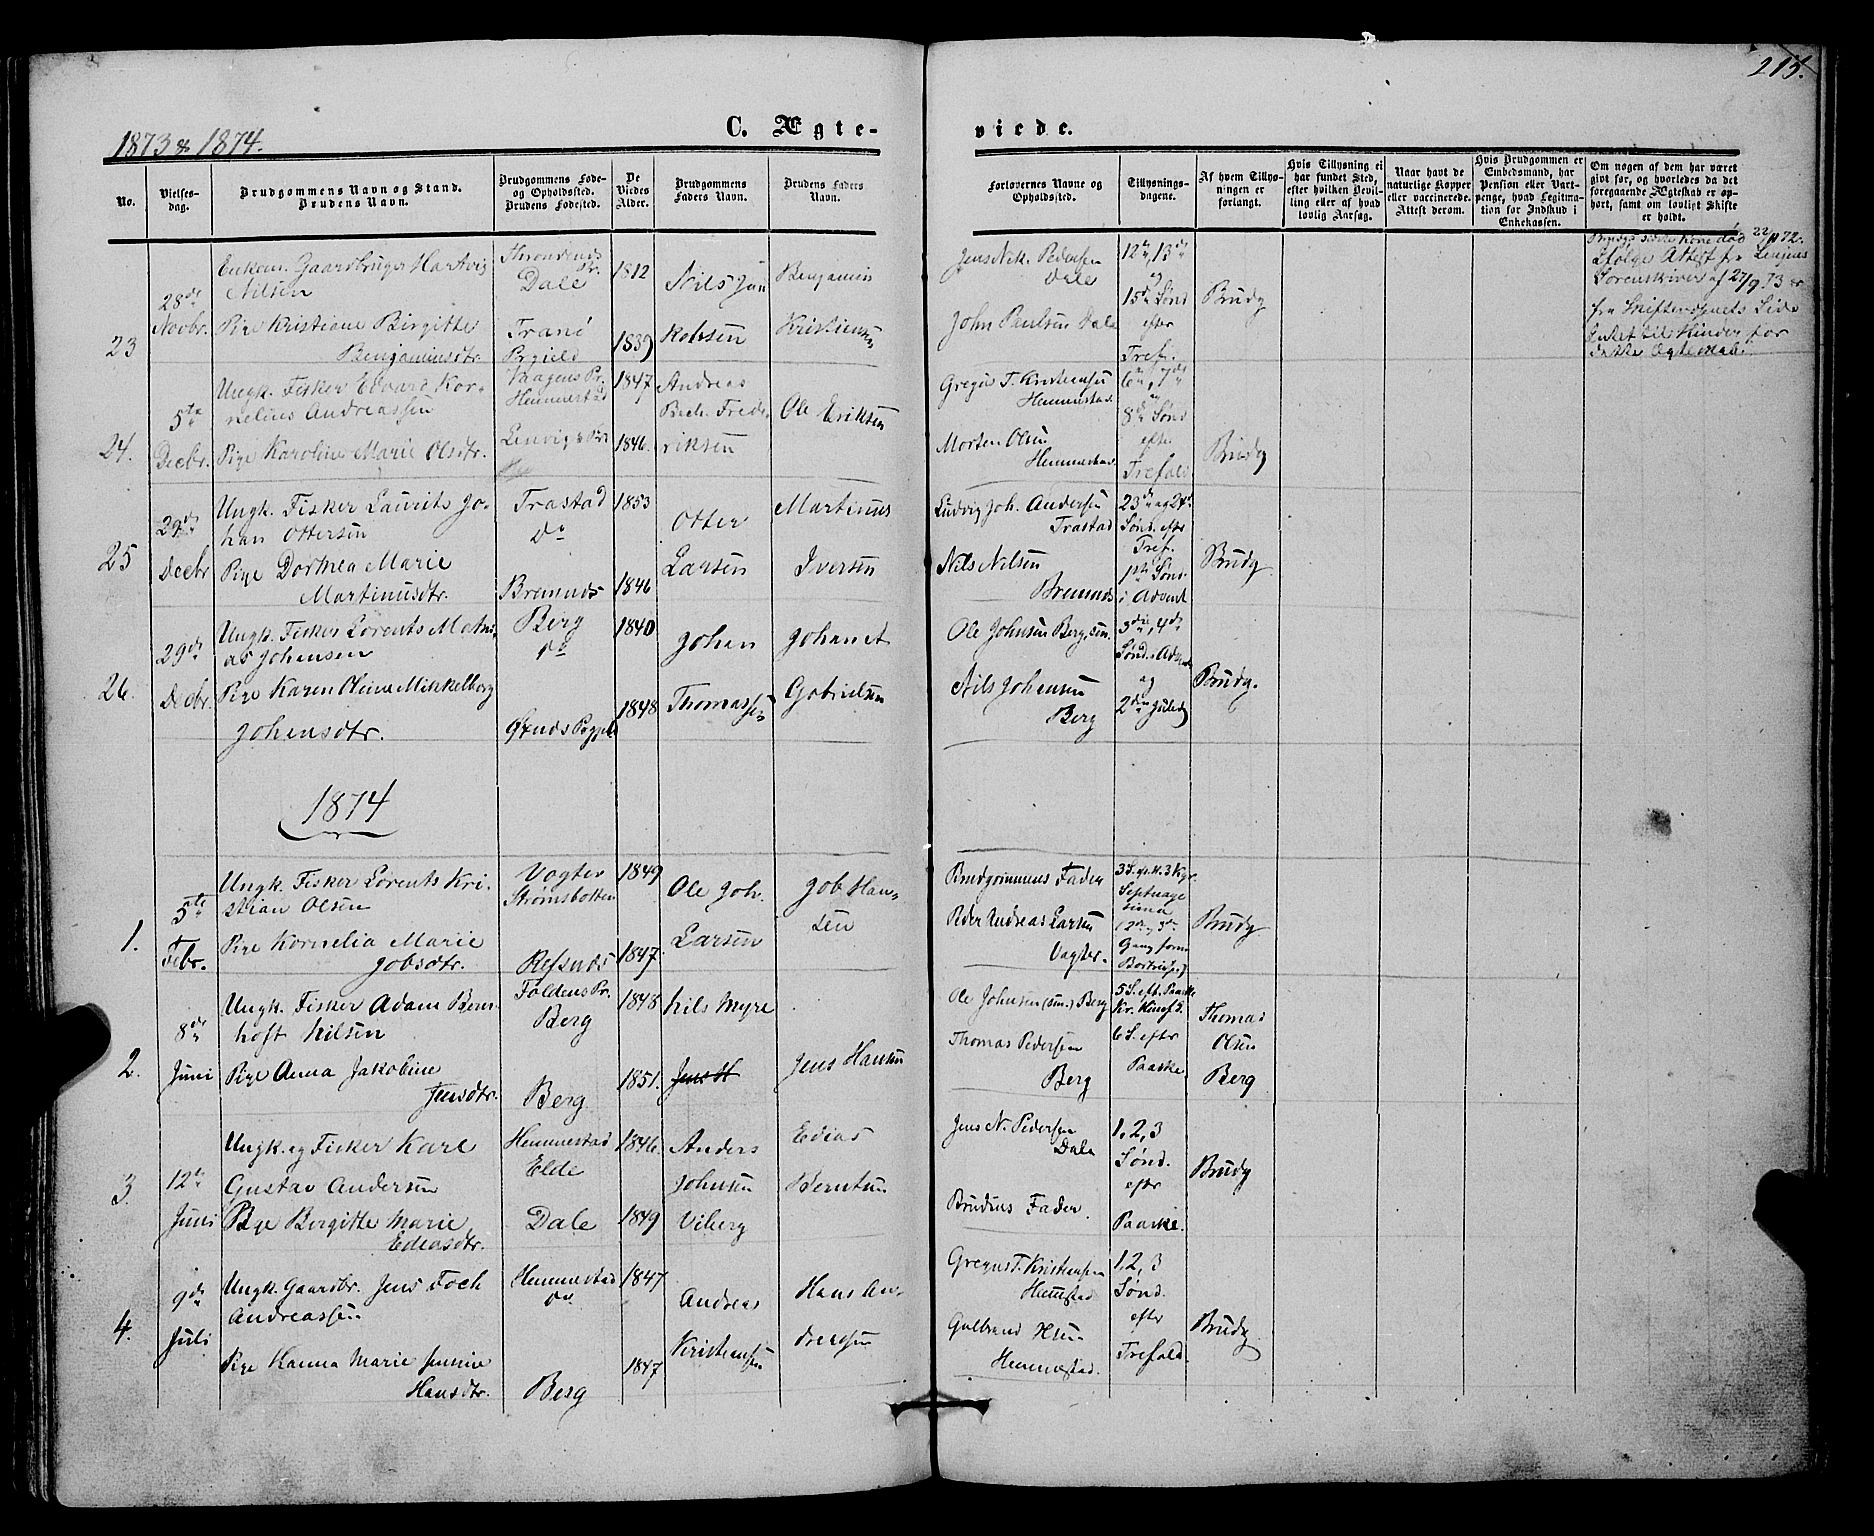 215.
1873 & 1874.
C. Ægte-
viede.
No.
Vielses-
dag.
Brudgommens Navn og Stand.
Brudens Navn.
Brudgommens Føde-
og Opholdssted.
Brudens Fødested.
De
Viedes
Alder.
Brudgommens
Faders Navn.
Brudens Faders
Navn.
Forlovernes Navne og
Opholdssted.
Tillysnings-
dagene.
Af hvem Tillys-
ningen er
forlangt.
Hvis Tillysning ei
har fundet Sted,
efter hvilken Bevil-
ling eller af hvad
lovlig Aarsag.
Naar havt de
naturlige Kopper
eller vaccinerede.
Attest derom.
Hvis Brudgommen er
Embedsmand, har
Pension eller Vart-
penge, hvad Legitima-
tion for Indskud i
Enkekassen.
Om nogen af dem har været
gift før, og hvorledes da det
foregaaende Ægteskab er op-
hørt, samt om lovligt Skifte
er holdt.
23
28de
Novbr.
Enkem. Gaardbruger Hartvig
Nilsen
Pige Kristiane Birgitte
Benjaminsdtr.
Throndenes
Pr.
Dale
Tranø
Prgjeld
1812
1839
Nils Jan
Kobsen
Benjamin
Kristiansen
Jens Nik. Pedersen
Dale
John Paulsen Dale
12te, 13de
og
15de Sønd
efter
Tref.
Brudg
Brudgs sidste Kone død 22/ 72.
Ifølge Attest fr Senjens
Sorenskriver af 27/9 73 er
fra Skifterettens Side
Intet til Hinder for
dette Ægteskab.
24.
5te
Decbr.
Ungk. Fisker Edvard Kor-
nelius Andreassen
Pige Karoline Marie Olsdtr.
Vaagens Pr.
Hemmestad
Lenvig
1847
1846.
Andreas
Bach. Frede-
riksen
Ole Eriksen
Gregus T. Kristiansen
Hemmestad
Morten Olsen
Hemmestad
6te, 7de
og
8de Sønd
efter
Trefold.
Brudg
25
29de
Decbr
Ungk. Fisker Laurits Jo-
han Ottersen
Pige Dorthea Marie
Martinusdtr.
Trastad
do
Bremnes
1853
1846
Otter
Larsen
Martinus
Iversen
Ludvig Joh. Andersen
Trastad
Nils Nilsen
Bremnes
23de og 24de
Sønd. efter
Tref.
1ste Sønd.
i Advent
Brudg
26.
29de
Decbr.
Ungk. Fisker Lorents Mathi-
as Johansen
Pige Karen Oline Mikkelborg
Johansdtr.
Berg
do
Øxnes Prgjeld
1840
1848
Johan
Thomassen
Johan A
Gabrielsen
Ole Johnsen Berg, sen.
Nils Johansen
Berg
3die, 4de
Sønd. i Advent
og
2den Juledg
Brudg.
1874
1.
5te
Febr.
Ungk. Fisker Lorents Kri-
stian Olsen
Pige Kornelia Marie
Jobsdtr.
Vogter
Strømsbotten
Refsnes
1849
1847.
Ole Joh.
Larsen
Job Han-
sen
Brudgommens Fader
Peder Andreas Larsen
Vagter.
Septuage
sima
Gang form
Brudg
2.
8de
Juni
Ungk. Fisker Adam Bern-
hoft Nilsen
Pige Anna Jakobine
Jensdtr.
Foldens Pr.
Berg
Berg
1848
1851.
Nils Myre
Jens H
Jens Hansen
Ole Johnsen (sen.) Berg
Thomas Pedersen
Berg
5 S. eft. Paaske
Kr. Himf. d.
6 S. efter
Paaske.
Thomas
Olsen
Berg
3
12te
Juni
Ungk. og Fisker Karl
Gustav Andersen
Pige Bergitte Marie
Ediasdtr.
Hemmestad
Elde
Dale
1846.
1849
Anders
Johnsen
Viberg
Edias
Berntsen
Jens N. Pedersen
Dale
Brudens Fader
1, 2, 3
Sønd.
efter
Paaske.
Brudg
4.
9de
Juli
Ungk. Gaardbr. Jens Foch
Andreassen
Pige Hanna Marie Jensine
Hansdtr.
Hemmestad
do.
Berg
1847
1847
Andreas
Kristiansen
Hans An-
dreasen
Gregus T. Kristiansen
Hemestad
Gulbrand Hsen
Hemmestad.
1, 2, 3
Sønd.
efter
Trefold.
Brudg